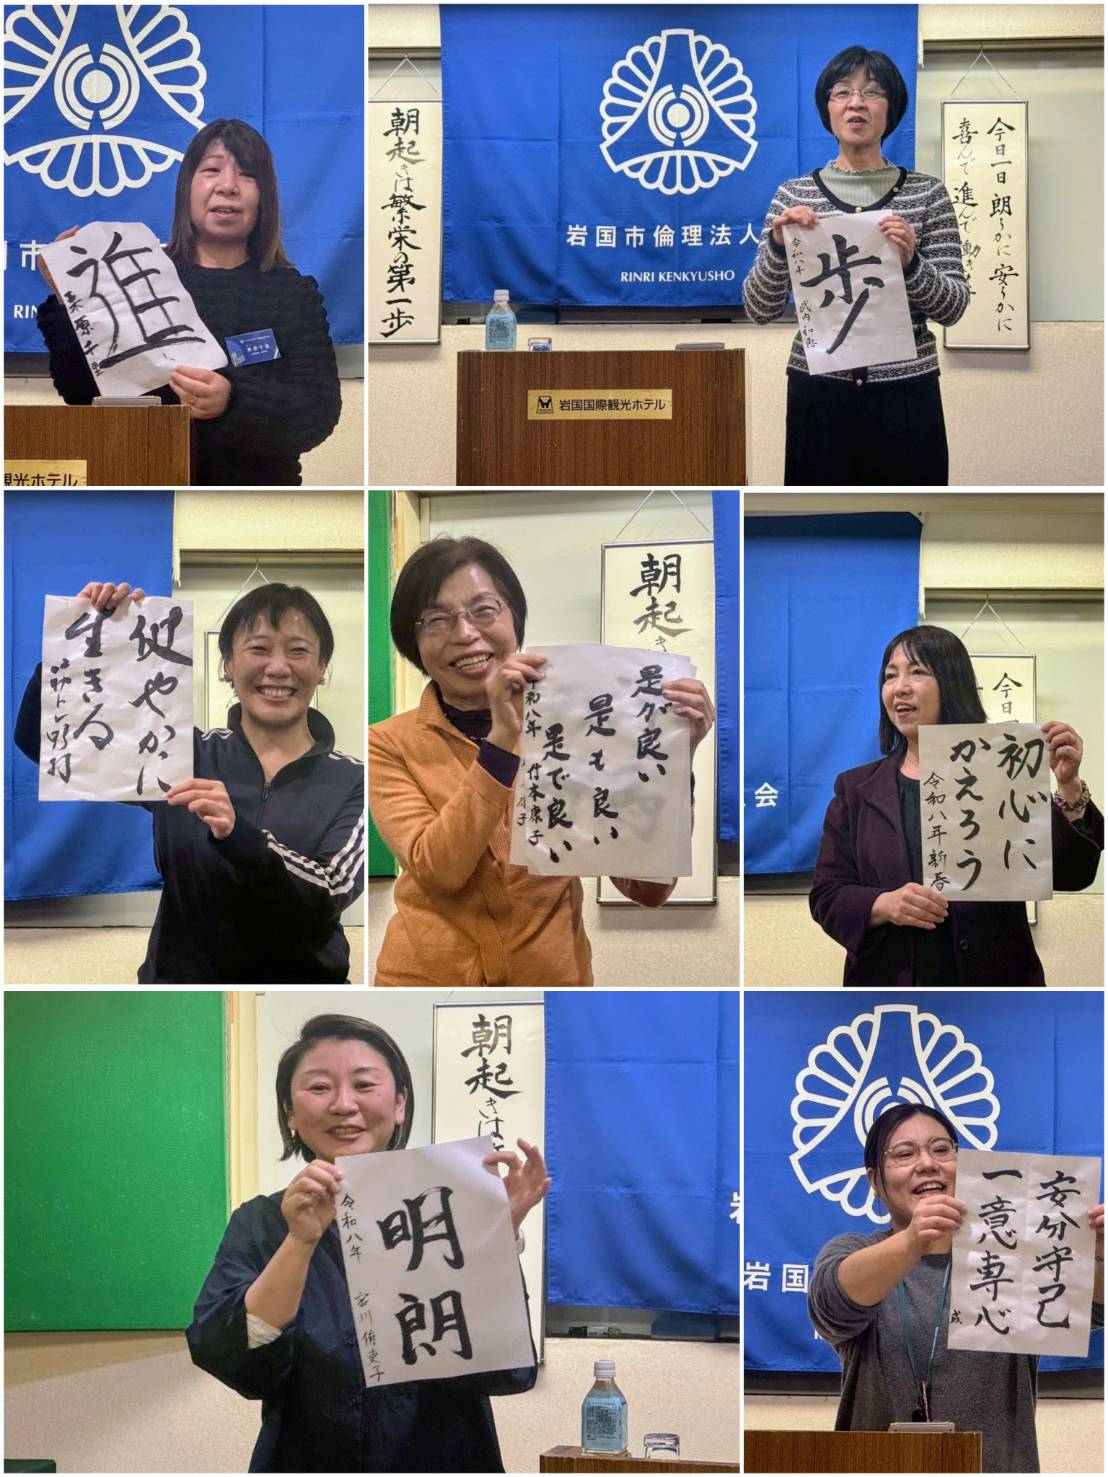 進
栗原千里
観光ホテル
朝起きは繁栄の第一歩
岩国市倫理法人
RINRI KENKYUSHO
今日一日 朗らかに 安らかに
喜んで 進んで 働き
歩
岩国国際観光ホテル
健やかに
生きる
朝起き
是が良い
是も良い
是で良い
令和八年 竹本康子
今日
会
初心に
かえろう
令和八年新春
朝起きは
明朗
令和八年
岩国
安分守己
一意専心
成